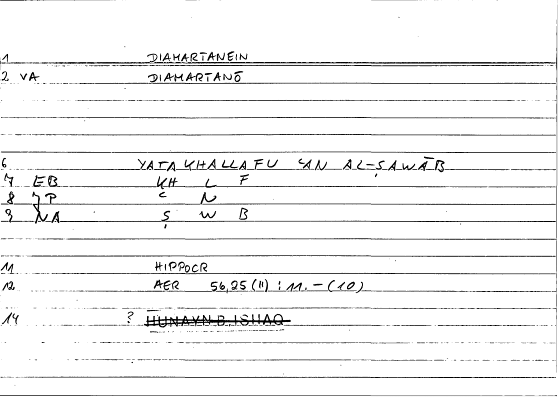 1 DIAMARTANEIN
2 VA DIAMARTANŌ
6 YATAKHALLAFU ʿAN AL-ṢAWĀB
7 EB KH L F
8 JP ʿ N
9 NA Ṣ W B
11 HIPPOCR
12 AER 56,25 (11) : 11. – (10)
14 ? HUNAYN B. ISHAQ